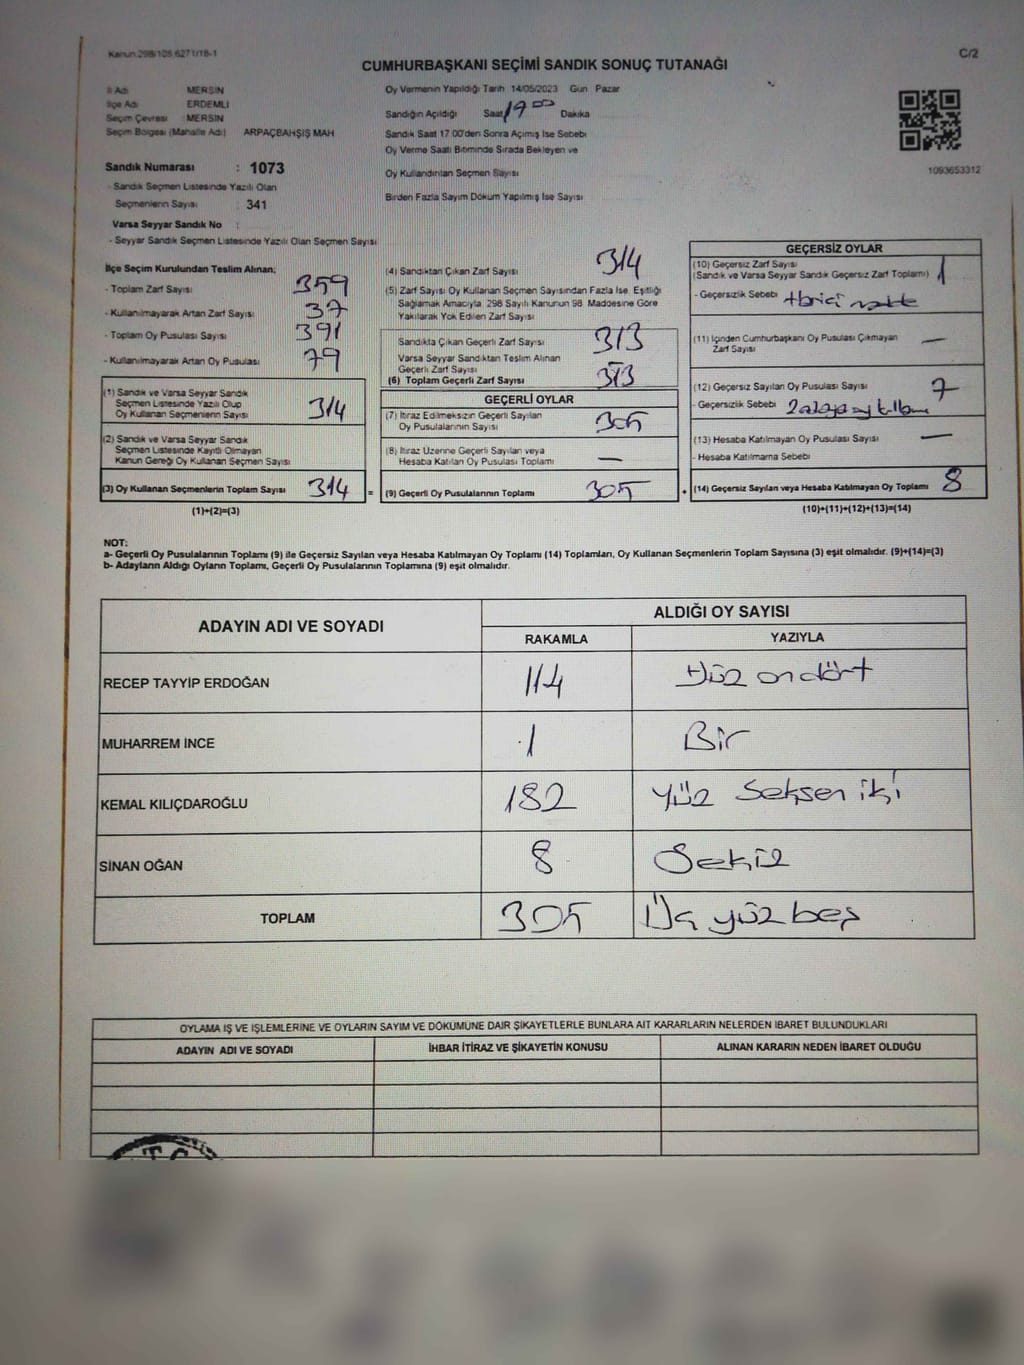 Kanun 298/105 6271/18-1
C/2
CUMHURBAŞKANI SEÇİMİ SANDIK SONUÇ TUTANAĞI
İl Adı : MERSİN
İlçe Adı : ERDEMLİ
Seçim Çevresi : MERSİN
Seçim Bölgesi (Mahalle Adı) ARPAÇBAHŞİŞ MAH
Sandık Numarası : 1073
- Sandık Seçmen Listesinde Yazılı Olan
Seçmenlerin Sayısı : 341
Varsa Seyyar Sandık No :
- Seyyar Sandık Seçmen Listesinde Yazılı Olan Seçmen Sayısı
Oy Vermenin Yapıldığı Tarih 14/05/2023 Gün Pazar
Sandığın Açıldığı Saat 19 00 Dakika
Sandık Saat 17.00'den Sonra Açımış İse Sebebi
Oy Verme Saati Bitiminde Sırada Bekleyen ve
Oy Kullandırılan Seçmen Sayısı
Birden Fazla Sayım Döküm Yapılmış İse Sayısı
1093653312
İlçe Seçim Kurulundan Teslim Alınan;
- Toplam Zarf Sayısı 359
- Kullanılmayarak Artan Zarf Sayısı 37
- Toplam Oy Pusulası Sayısı 391
- Kullanılmayarak Artan Oy Pusulası 79
(1) Sandık ve Varsa Seyyar Sandık
Seçmen Listesinde Yazılı Olup
Oy Kullanan Seçmenlerin Sayısı 314
(2) Sandık ve Varsa Seyyar Sandık
Seçmen Listesinde Kayıtlı Olmayan
Kanun Gereği Oy Kullanan Seçmen Sayısı
(3) Oy Kullanan Seçmenlerin Toplam Sayısı 314 =
(1)+(2)=(3)
(4) Sandıktan Çıkan Zarf Sayısı 314
(5) Zarf Sayısı Oy Kullanan Seçmen Sayısından Fazla İse, Eşitliği
Sağlamak Amacıyla, 298 Sayılı Kanunun 98. Maddesine Göre
Yakılarak Yok Edilen Zarf Sayısı
Sandıkta Çıkan Geçerli Zarf Sayısı 313
Varsa Seyyar Sandıktan Teslim Alınan
Geçerli Zarf Sayısı
(6) Toplam Geçerli Zarf Sayısı 313
GEÇERLİ OYLAR
(7) İtiraz Edilmeksizin Geçerli Sayılan
Oy Pusulalarının Sayısı 305
(8) İtiraz Üzerine Geçerli Sayılan veya
Hesaba Katılan Oy Pusulası Toplamı —
(9) Geçerli Oy Pusulalarının Toplamı 305 +
GEÇERSİZ OYLAR
(10) Geçersiz Zarf Sayısı
(Sandık ve Varsa Seyyar Sandık Geçersiz Zarf Toplamı) 1
- Geçersizlik Sebebi
(11) İçinden Cumhurbaşkanı Oy Pusulası Çıkmayan
Zarf Sayısı —
(12) Geçersiz Sayılan Oy Pusulası Sayısı 7
- Geçersizlik Sebebi
(13) Hesaba Katılmayan Oy Pusulası Sayısı —
- Hesaba Katılmama Sebebi
(14) Geçersiz Sayılan veya Hesaba Katılmayan Oy Toplamı 8
(10)+(11)+(12)+(13)=(14)
NOT:
a- Geçerli Oy Pusulalarının Toplamı (9) ile Geçersiz Sayılan veya Hesaba Katılmayan Oy Toplamı (14) Toplamları, Oy Kullanan Seçmenlerin Toplam Sayısına (3) eşit olmalıdır. (9)+(14)=(3)
b- Adayların Aldığı Oyların Toplamı, Geçerli Oy Pusulalarının Toplamına (9) eşit olmalıdır.
ADAYIN ADI VE SOYADI
ALDIĞI OY SAYISI
RAKAMLA YAZIYLA
RECEP TAYYİP ERDOĞAN 114 Yüz on dört
MUHARREM İNCE 1 Bir
KEMAL KILIÇDAROĞLU 182 Yüz Seksen iki
SİNAN OĞAN 8 Sekiz
TOPLAM 305 Üç yüz beş
OYLAMA İŞ VE İŞLEMLERİNE VE OYLARIN SAYIM VE DÖKÜMÜNE DAİR ŞİKAYETLERLE BUNLARA AİT KARARLARIN NELERDEN İBARET BULUNDUKLARI
ADAYIN ADI VE SOYADI İHBAR İTİRAZ VE ŞİKAYETİN KONUSU ALINAN KARARIN NEDEN İBARET OLDUĞU
T.C.